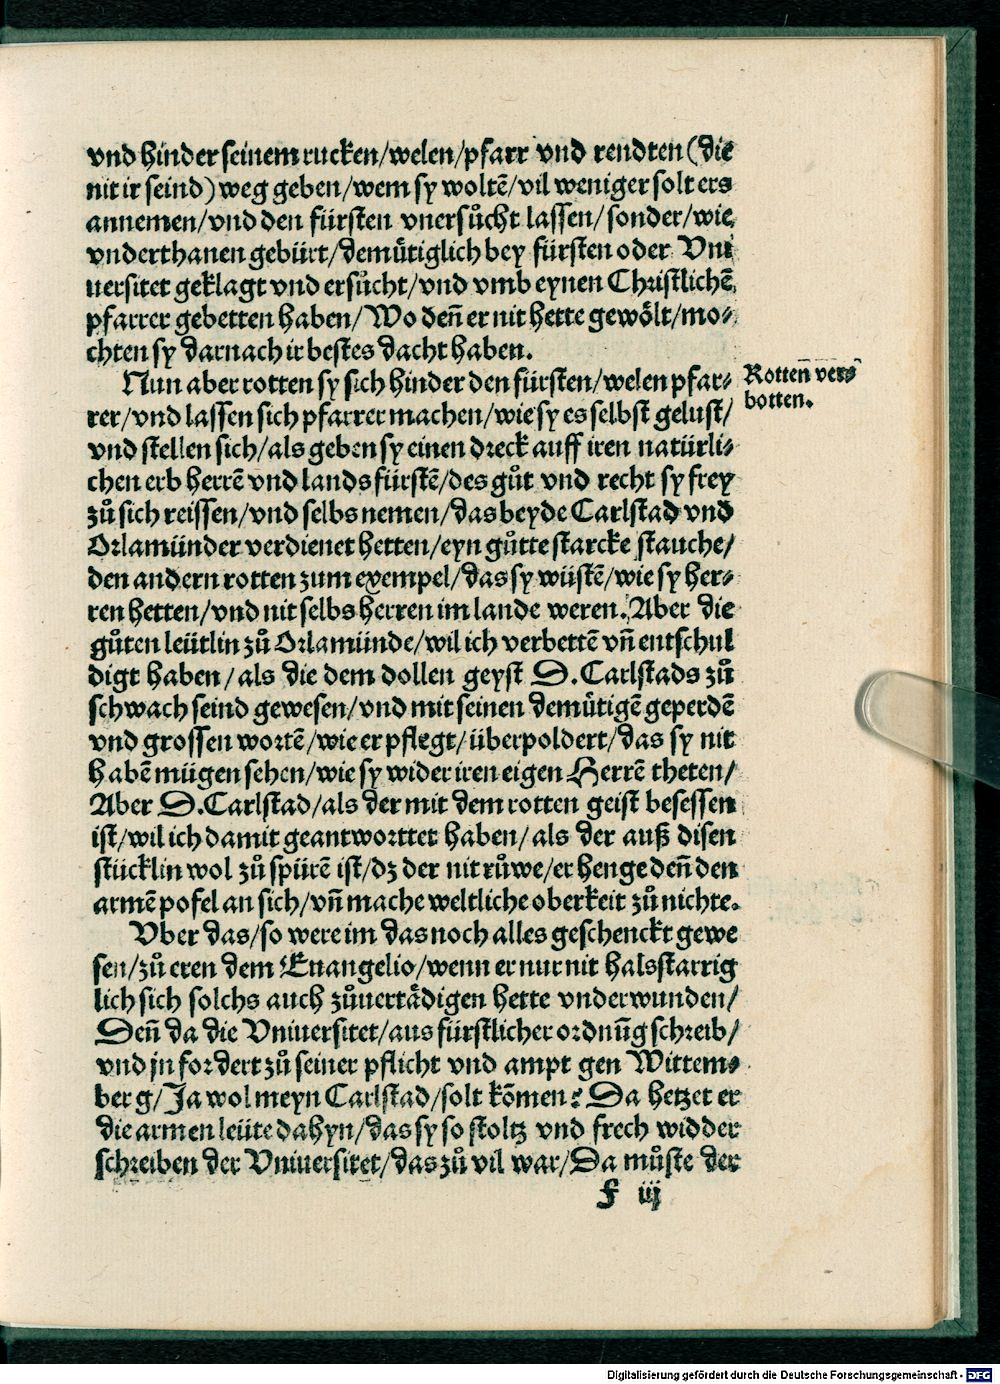 vnd hinder seinem rucken/welen/pfarr vnd rendten (die
nit ir seind) weg geben/wem sy woltē/vil weniger solt ers
annemen/vnd den fürsten vnersůcht lassen/sonder/wie
vnderthanen gebürt/demütiglich bey fürsten oder Vni
uersitet geklagt vnd ersůcht/vnd vmb eynen Christlichē
pfarrer gebetten haben/Wo deñ er nit hette gewölt/mo⸗
chten sy darnach ir bestes dacht haben.
Nun aber rotten sy sich hinder den fürsten/welen pfar⸗
rer/vnd lassen sich pfarrer machen/wie sy es selbst gelust/
vnd stellen sich/als geben sy einen dreck auff iren natürli⸗
chen erb herrē vnd landsfürstē/des gůt vnd recht sy frey
zů sich reissen/vnd selbs nemen/das beyde Carlstad vnd
Orlamünder verdienet hetten/eyn gůtte starcke stauche/
den andern rotten zum exempel/das sy wüstē/wie sy her⸗
ren hetten/vnd nit selbs herren im lande weren. Aber die
gůten leütlin zů Orlamünde/wil ich verbettē vñ entschul
digt haben/als die dem dollen geyst D. Carlstads zů
schwach seind gewesen/vnd mit seinen demütigē geperdē
vnd grossen wortē/wie er pflegt/überpoldert/das sy nit
habē mügen sehen/wie sy wider iren eigen Herrē theten/
Aber D. Carlstad/als der mit dem rotten geist besessen
ist/wil ich damit geantworttet haben/als der auß disen
stücklin wol zů spürē ist/dz der nit růwe/er henge deñ den
armē pofel an sich/vñ mache weltliche oberkeit zů nichte.
Vber das/so were im das noch alles geschenckt gewe
sen/zů eren dem Euangelio/wenn er nur nit halsstarrig
lich sich solchs auch zůuertädigen hette vnderwunden/
Deñ da die Vniuersitet/aus fürstlicher ordnũg schreib/
vnd jn fordert zů seiner pflicht vnd ampt gen Wittem⸗
berg/Ja wol meyn Carlstad/solt kõmen? Da hetzet er
die armen leüte dahyn/das sy so stoltz vnd frech widder
schreiben der Vniuersitet/das zů vil war/Da můste der
f iij
Rotten ver⸗
botten.
Digitalisierung gefördert durch die Deutsche Forschungsgemeinschaft - DFG